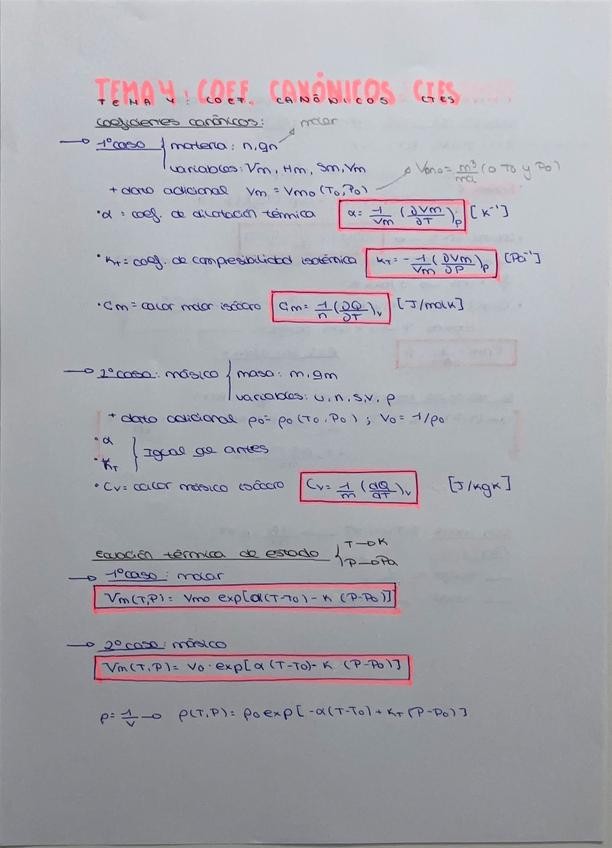 TEMA 4: COEF. CANÓNICOS CTES
TEMA 4: COEF. CANÓNICOS CTES
Coeficientes canónicos:
→ 1º caso { materia: n, gn → molar
variables: Vm, Hm, Sm, Vm
+ dato adicional Vm = Vmo (To, Po) Vmo = m³/mol (a To y Po)
· α = coef. de dilatación térmica α = 1/Vm (∂Vm/∂T)p [K⁻¹]
· KT = coef. de compresibilidad isotérmico KT = - 1/Vm (∂Vm/∂P)p [Pa⁻¹]
· Cm = calor molar isócoro Cm = 1/n (∂Q/∂T)v [J/molK]
→ 2º caso: másico { masa: m, gm
variables: u, n, s, v, ρ
+ dato adicional ρo = ρo (To, Po) ; Vo = 1/ρo
· α
· KT } Igual qe antes
· Cv = calor másico isócoro Cv = 1/m (dQ/dT)v [J/kgK]
Ecuación térmica de estado { T → K
P → Pa
→ 1º caso: molar
Vm (T,P) = Vmo exp[α(T-To) - K (P-Po)]
→ 2º caso: másico
Vm (T,P) = Vo · exp[α(T-To) - K (P-Po)]
ρ = 1/v → ρ(T,P) = ρo exp[-α(T-To) + KT (P-Po)]